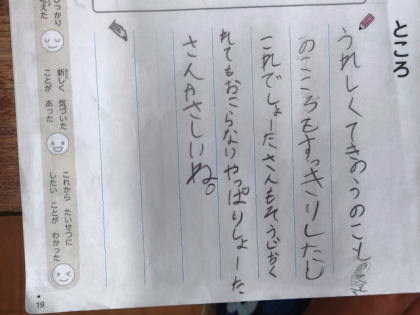 ところ
うれしくてきのうのこと
のこころもすっきりしたし
これでしょーたさんもそうじおく
れてもおこらないやっぱりしょーた
さんやさしいね。
しっかり
考えた
新しく 気づいた
ことが あった
これから たいせつに
したい ことが わかった
19